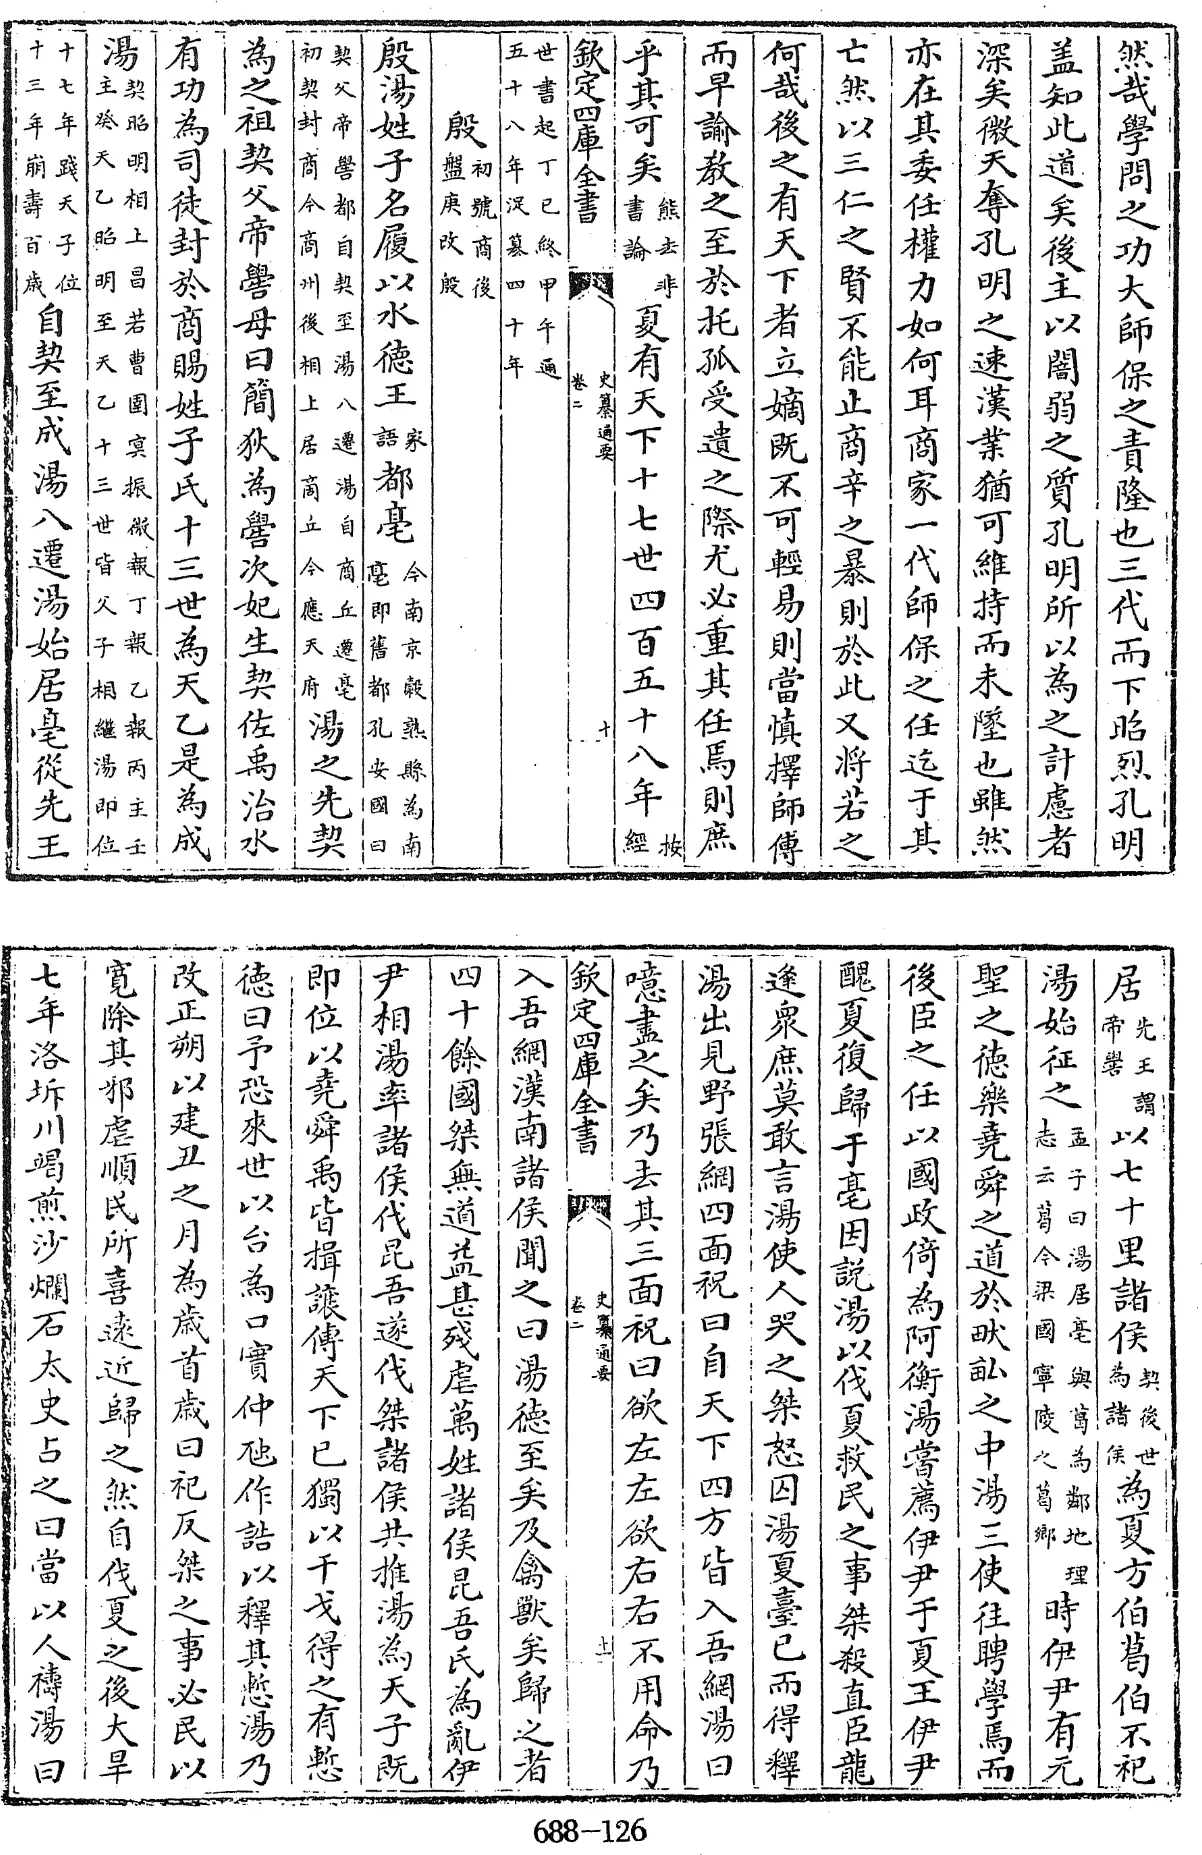 然哉學問之功大師保之責隆也三代而下昭烈孔明
盖知此道矣後主以闇弱之質孔明所以為之計慮者
深矣微天奪孔明之速漢業猶可維持而未墜也雖然
亦在其委任權力如何耳商家一代師保之任迄于其
亡然以三仁之賢不能止商辛之暴則於此又將若之
何哉後之有天下者立嫡既不可輕易則當慎擇師傅
而早諭教之至於托孤受遺之際尤必重其任焉則庶
乎其可矣熊去非書論夏有天下十七世四百五十八年按經
欽定四庫全書 史纂通要 卷二 十
世書起丁巳終甲午通五十八年浞簒四十年
殷初號商後盤庚改殷
殷湯姓子名履以水德王家語都亳今南京穀熟縣為南亳即舊都孔安國曰
契父帝嚳都自契至湯八遷湯自商丘遷亳初契封商今商州後相上居商丘今應天府湯之先契
為之祖契父帝嚳母曰簡狄為嚳次妃生契佐禹治水
有功為司徒封於商賜姓子氏十三世為天乙是為成
湯契昭明相上昌若曹圉㝠振微報丁報乙報丙主壬主癸天乙昭明至天乙十三世皆父子相繼湯即位
十七年踐天子位十三年崩壽百歲自契至成湯八遷湯始居亳從先王
居先王謂帝嚳以七十里諸侯契後世為諸侯為夏方伯葛伯不祀
湯始征之孟子曰湯居亳與葛為鄰地理志云葛今梁國寧陵之葛鄉時伊尹有元
聖之德樂堯舜之道於畎畝之中湯三使往聘學焉而
後臣之任以國政倚為阿衡湯嘗薦伊尹于夏王伊尹
醜夏復歸于亳因説湯以伐夏救民之事桀殺直臣龍
逄衆庶莫敢言湯使人哭之桀怒囚湯夏臺已而得釋
湯出見野張網四面祝曰自天下四方皆入吾網湯曰
噫盡之矣乃去其三面祝曰欲左左欲右右不用命乃
欽定四庫全書 史纂通要 卷二 十一
入吾網漢南諸侯聞之曰湯德至矣及禽獸矣歸之者
四十餘國桀無道益甚殘虐萬姓諸侯昆吾氏為亂伊
尹相湯率諸侯伐昆吾遂伐桀諸侯共推湯為天子既
即位以堯舜禹皆揖讓傳天下已獨以干戈得之有慙
德曰予恐來世以台為口實仲虺作誥以釋其慙湯乃
改正朔以建丑之月為歲首歲曰祀反桀之事必民以
寛除其邪虐順民所喜逺近歸之然自伐夏之後大旱
七年洛坼川竭煎沙爛石太史占之曰當以人禱湯曰
688-126